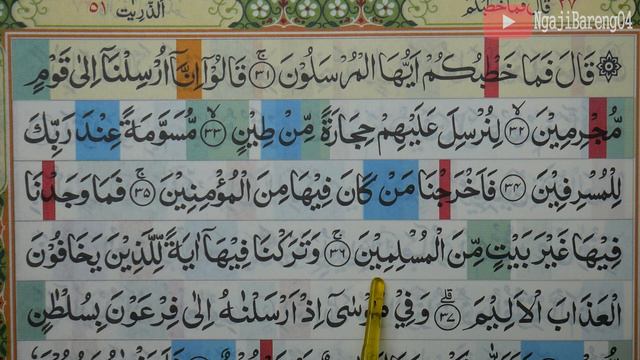 ٥١ الذّٰريٰت
٢٧ قال فما خطبكم
NgajiBareng04
۞ قَالَ فَمَا خَطْبُكُمْ اَيُّهَا الْمُرْسَلُوْنَ ۚ ٣١ قَالُوْٓا اِنَّآ اُرْسِلْنَآ اِلٰى قَوْمٍ
مُّجْرِمِيْنَۙ ٣٢ لِنُرْسِلَ عَلَيْهِمْ حِجَارَةً مِّنْ طِيْنٍۙ ٣٣ مُّسَوَّمَةً عِنْدَ رَبِّكَ
لِلْمُسْرِفِيْنَ ٣٤ فَاَخْرَجْنَا مَنْ كَانَ فِيْهَا مِنَ الْمُؤْمِنِيْنَۚ ٣٥ فَمَا وَجَدْنَا
فِيْهَا غَيْرَ بَيْتٍ مِّنَ الْمُسْلِمِيْنَۚ ٣٦ وَتَرَكْنَا فِيْهَآ اٰيَةً لِّلَّذِيْنَ يَخَافُوْنَ
الْعَذَابَ الْاَلِيْمَۗ ٣٧ وَفِيْ مُوْسٰىٓ اِذْ اَرْسَلْنٰهُ اِلٰى فِرْعَوْنَ بِسُلْطٰنٍ